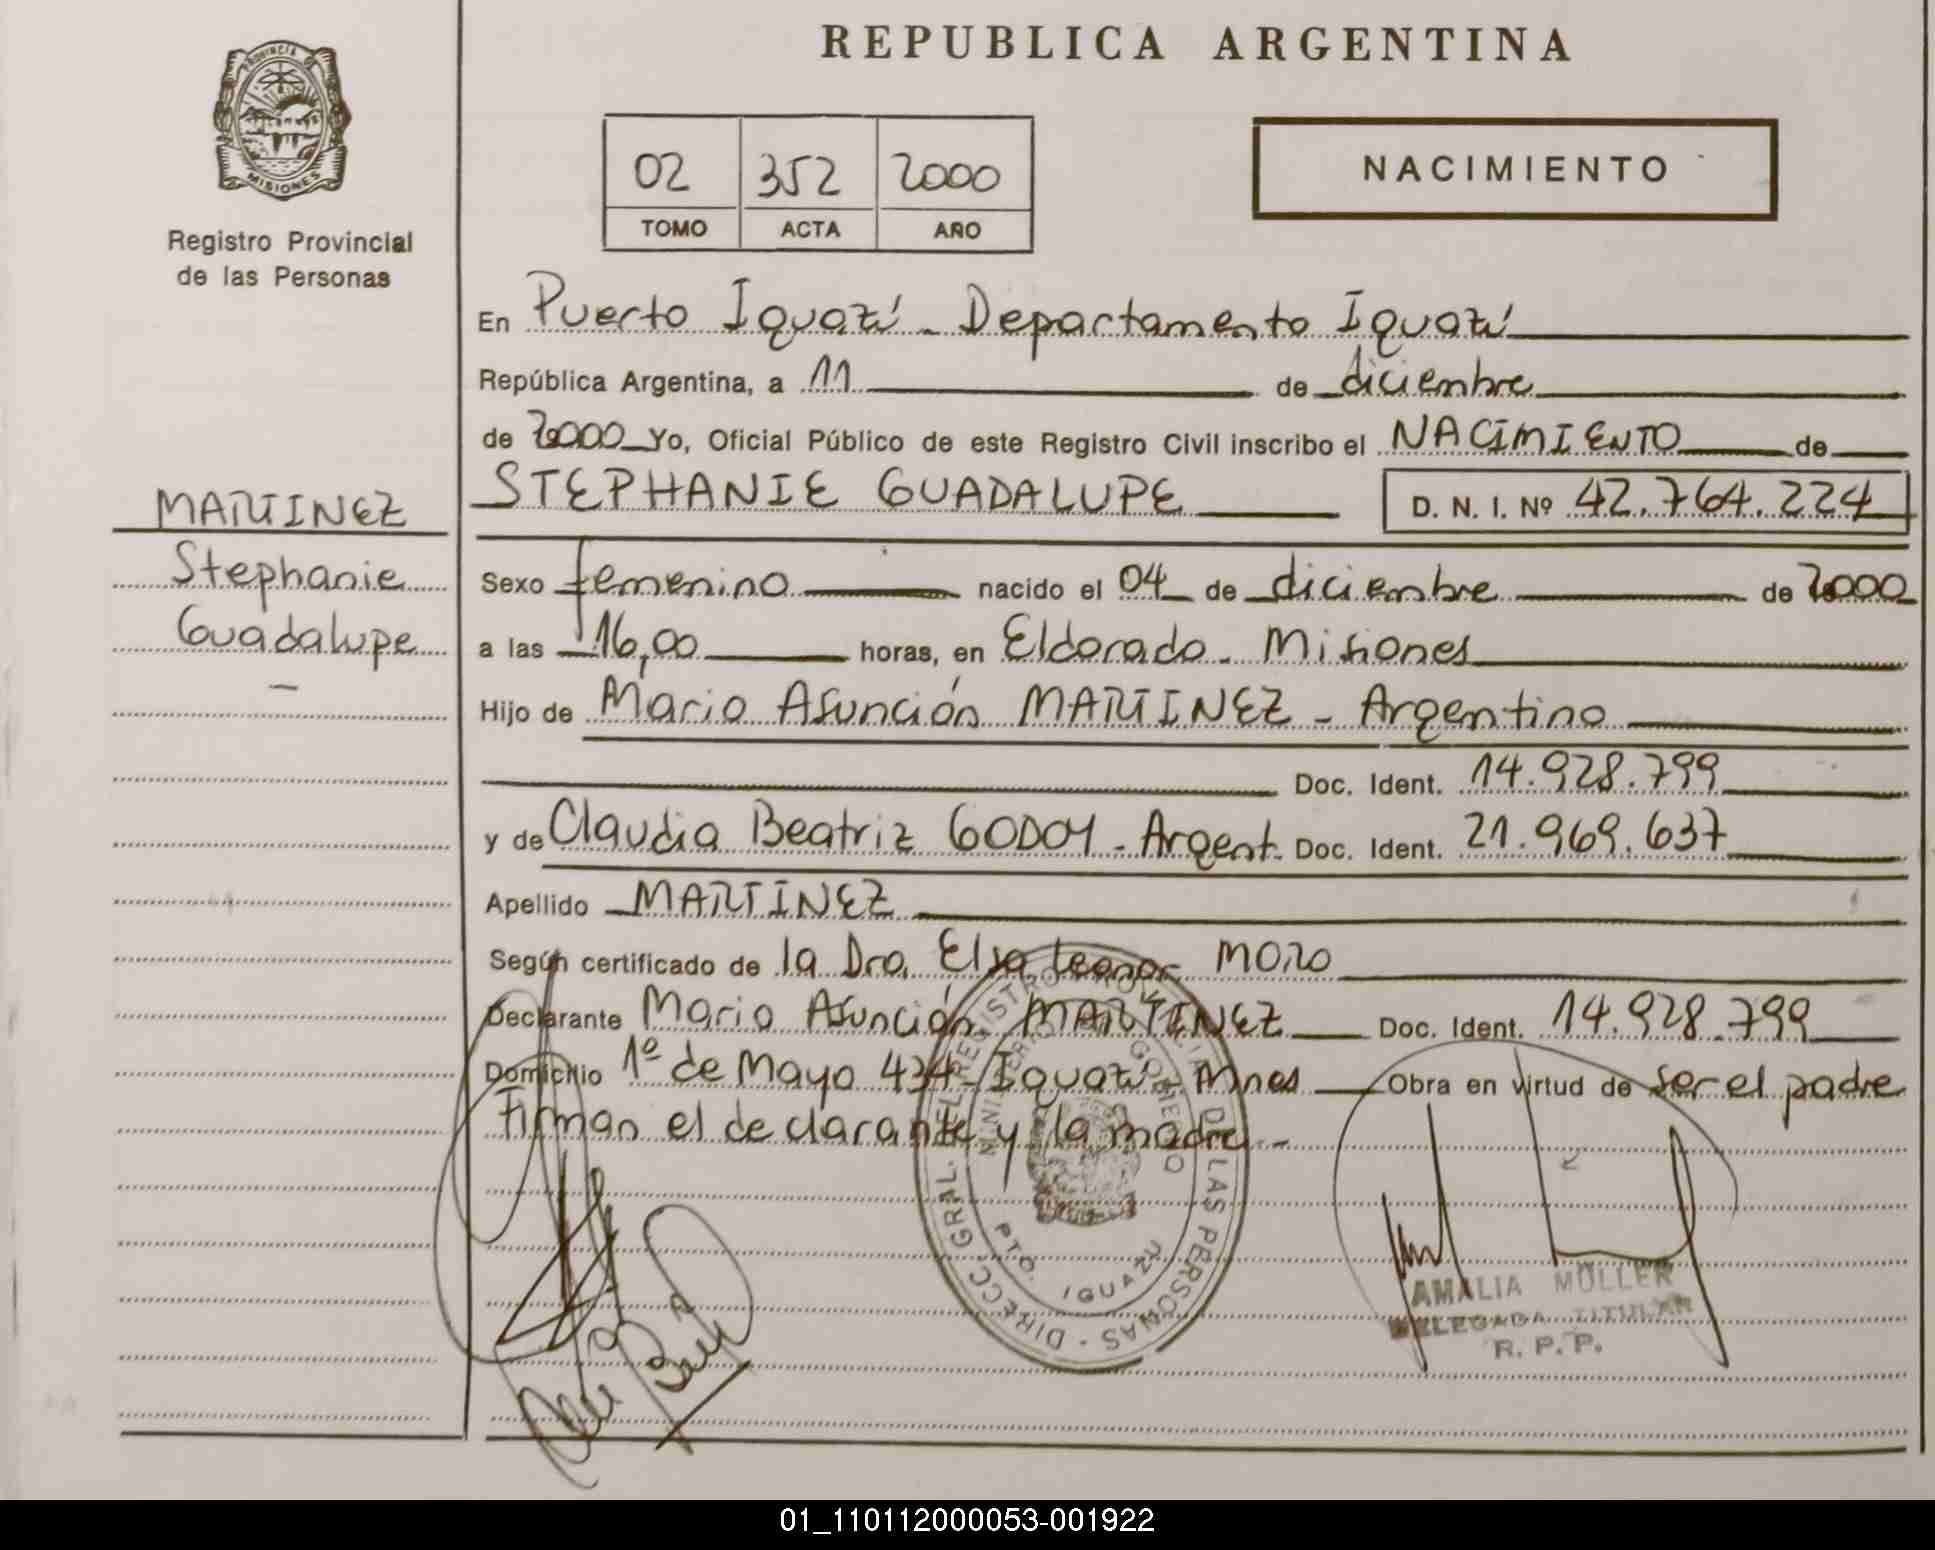 REPUBLICA ARGENTINA
PROVINCIA
MISIONES
Registro Provincial
de las Personas
02 352 2000
TOMO ACTA AÑO
NACIMIENTO
En Puerto Iguazú - Departamento Iguazú
República Argentina, a 11 de diciembre
de 2000 Yo, Oficial Público de este Registro Civil inscribo el NACIMIENTO de
STEPHANIE GUADALUPE D. N. I. Nº 42.764.224
MARTINEZ
Stephanie
Guadalupe
Sexo femenino nacido el 04 de diciembre de 2000
a las 16,00 horas, en Eldorado - Misiones
Hijo de Mario Asunción MARTINEZ - Argentino
Doc. Ident. 14.928.799
y de Claudia Beatriz GODOY - Argent. Doc. Ident. 21.969.637
Apellido MARTINEZ
Según certificado de la Dra. Elsa Leonor MORO
Declarante Mario Asunción MARTINEZ Doc. Ident. 14.928.799
Domicilio 1º de Mayo 434 - Iguazú - Mnes Obra en virtud de ser el padre
Firman el declarante y la madre -
DIRECC. GRAL. DEL REGISTRO PROVINCIAL DE LAS PERSONAS
GOBIERNO
PTO. IGUAZU
AMALIA MÜLLER
DELEGADA TITULAR
R. P. P.
01_110112000053-001922